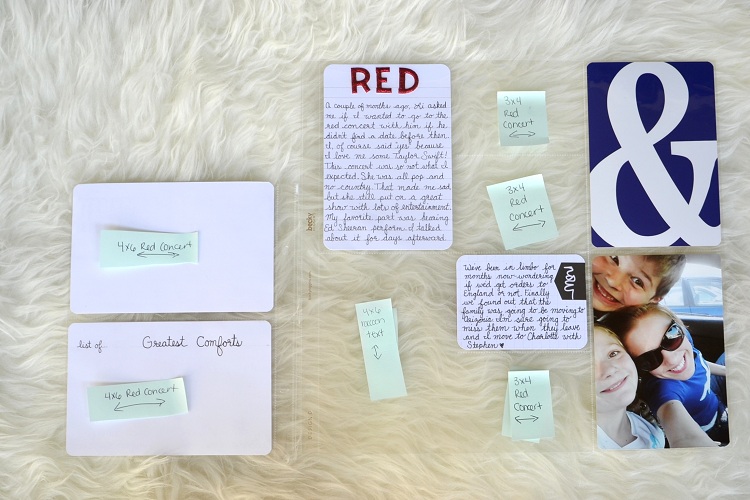 4x6 Red Concert
list of...
Greatest Comforts
4x6 Red Concert
becky
RED
A couple of months ago, Ali asked
me if I wanted to go to the
red concert with him if he
didn't find a date before then.
I, of course said yes because
I love me some Taylor Swift!
This concert was so not what I
expected. She was all pop and
no country. That made me sad
but she still put on a great
show with lots of entertainment.
My favorite part was hearing
Ed Sheeran perform. I talked
about it for days afterward.
3x4
Red
Concert
3x4
Red
Concert
&
4x6
text
We've been in limbo for
months now-wondering
if we'd get orders to
England or not. Finally
we found out that the
family was going to be moving to
I'm sure going to
miss them when they leave
and I move to Charlotte with
Stephen ♥
now
3x4
Red
Concert